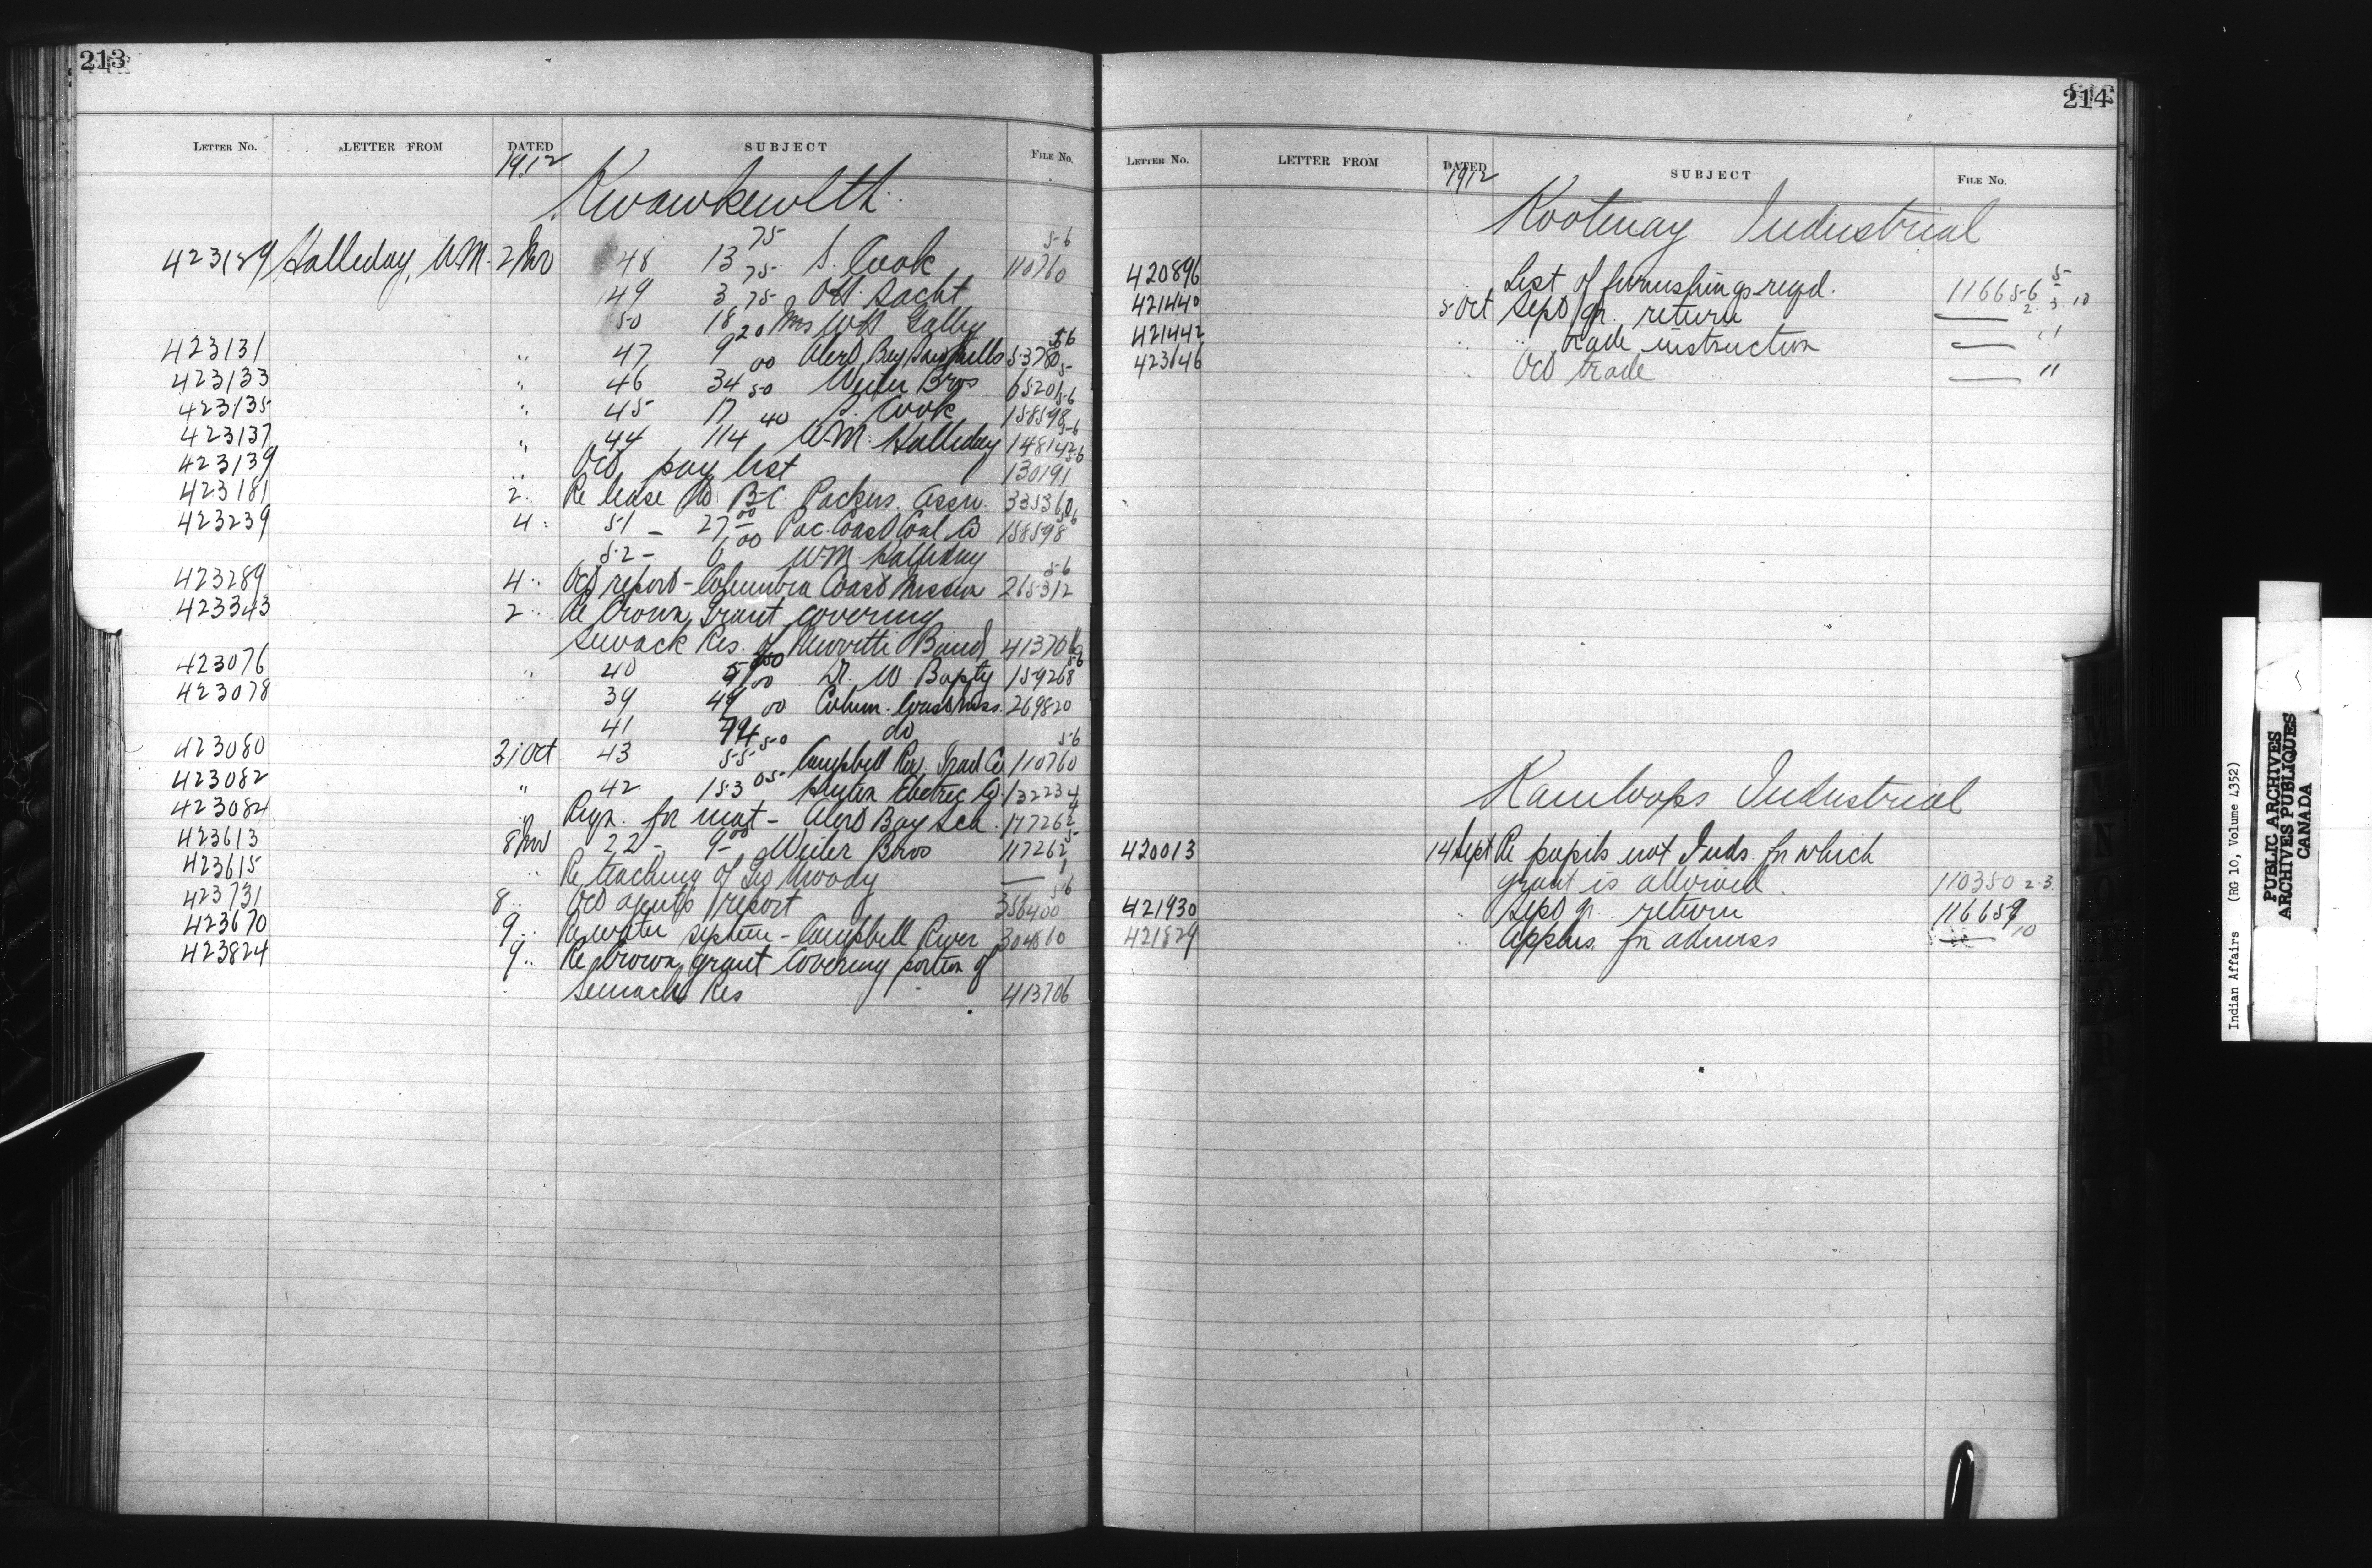 213
LETTER NO. LETTER FROM DATED SUBJECT FILE NO.
1912
Kwawkewlth
423129 Halliday, W.M. 2 Nov 48 13 75 S. Cook 110760 5-6
49 3 75 Ott. Yacht
50 18 75 Mrs W.H. Galley
423131 " 47 9 20 Alert Bay Saw Mills 53780 5-6
423133 " 46 34 00 Weiler Bros 65201 5-
423135 " 45 17 50 S. Cook 158598 5-6
423137 " 44 114 40 W.M. Halliday 148142 5-6
423139 " Oct pay list 130191 5-6
423181 2 " Re lease to B.C. Packers Assn. 335360
423239 4 " 51 - 27 00 Pac. Coast Coal Co 158598 5-6
52 - 6 00 W.M. Halliday
423289 4 " Oct report - Columbia Coast Mission 265312 5-6
423343 2 " Re Crown Grant covering
Semack Res. of Newitti Band 413706
423076 " 40 5 00 Dr. W. Bapty 159268 5-6
423078 39 49 00 Colum. Coast Miss. 269820
41 74 00 do
423080 31 Oct 43 55 50 Campbell Riv. Trad Co 110760 5-6
423082 " 42 153 05 Hinton Electric Co 132234
423084 " Reqn. for mat - Alert Bay Sch. 117262
423613 8 Nov 22 - 9 00 Weiler Bros 117262 5-
423615 " Re teaching of Geo Moody — "
423731 8 " Oct agents report 356400 5-6
423670 9 " Re water system - Campbell River 304860
423824 9 " Re Crown grant covering portion of
Semach Res 413706
214
LETTER NO. LETTER FROM DATED SUBJECT FILE NO.
1912
Kootenay Industrial
420896 List of furnishings reqd. 116656 5-
421440 5 Oct Sept qr. return — 2. 3. 10
421442 " " trade instruction — "
423646 " Oct trade — "
Kamloops Industrial
420013 14 Sept Re pupils not Inds. for which
grant is allowed. 110350 2.3.
421930 " Sept qr. return 116659
421829 " Applns. for admiss — 10
Indian Affairs (RG 10, Volume 4352)
PUBLIC ARCHIVES
ARCHIVES PUBLIQUES
CANADA